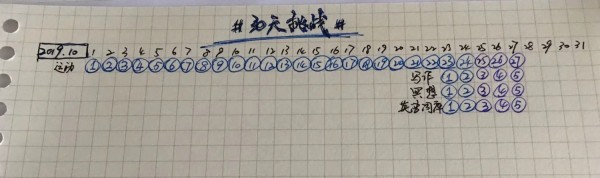 #30天挑战#
2019.10 1 2 3 4 5 6 7 8 9 10 11 12 13 14 15 16 17 18 19 20 21 22 23 24 25 26 27 28 29 30 31
运动 ① ② ③ ④ ⑤ ⑥ ⑦ ⑧ ⑨ ⑩ ⑪ ⑫ ⑬ ⑭ ⑮ ⑯ ⑰ ⑱ ⑲ ⑳ ㉑ ㉒ ㉓ ㉔ ㉕ ㉖ ㉗
写作 ① ② ③ ④ ⑤
冥想 ① ② ③ ④ ⑤
英语阅读 ① ② ③ ④ ⑤